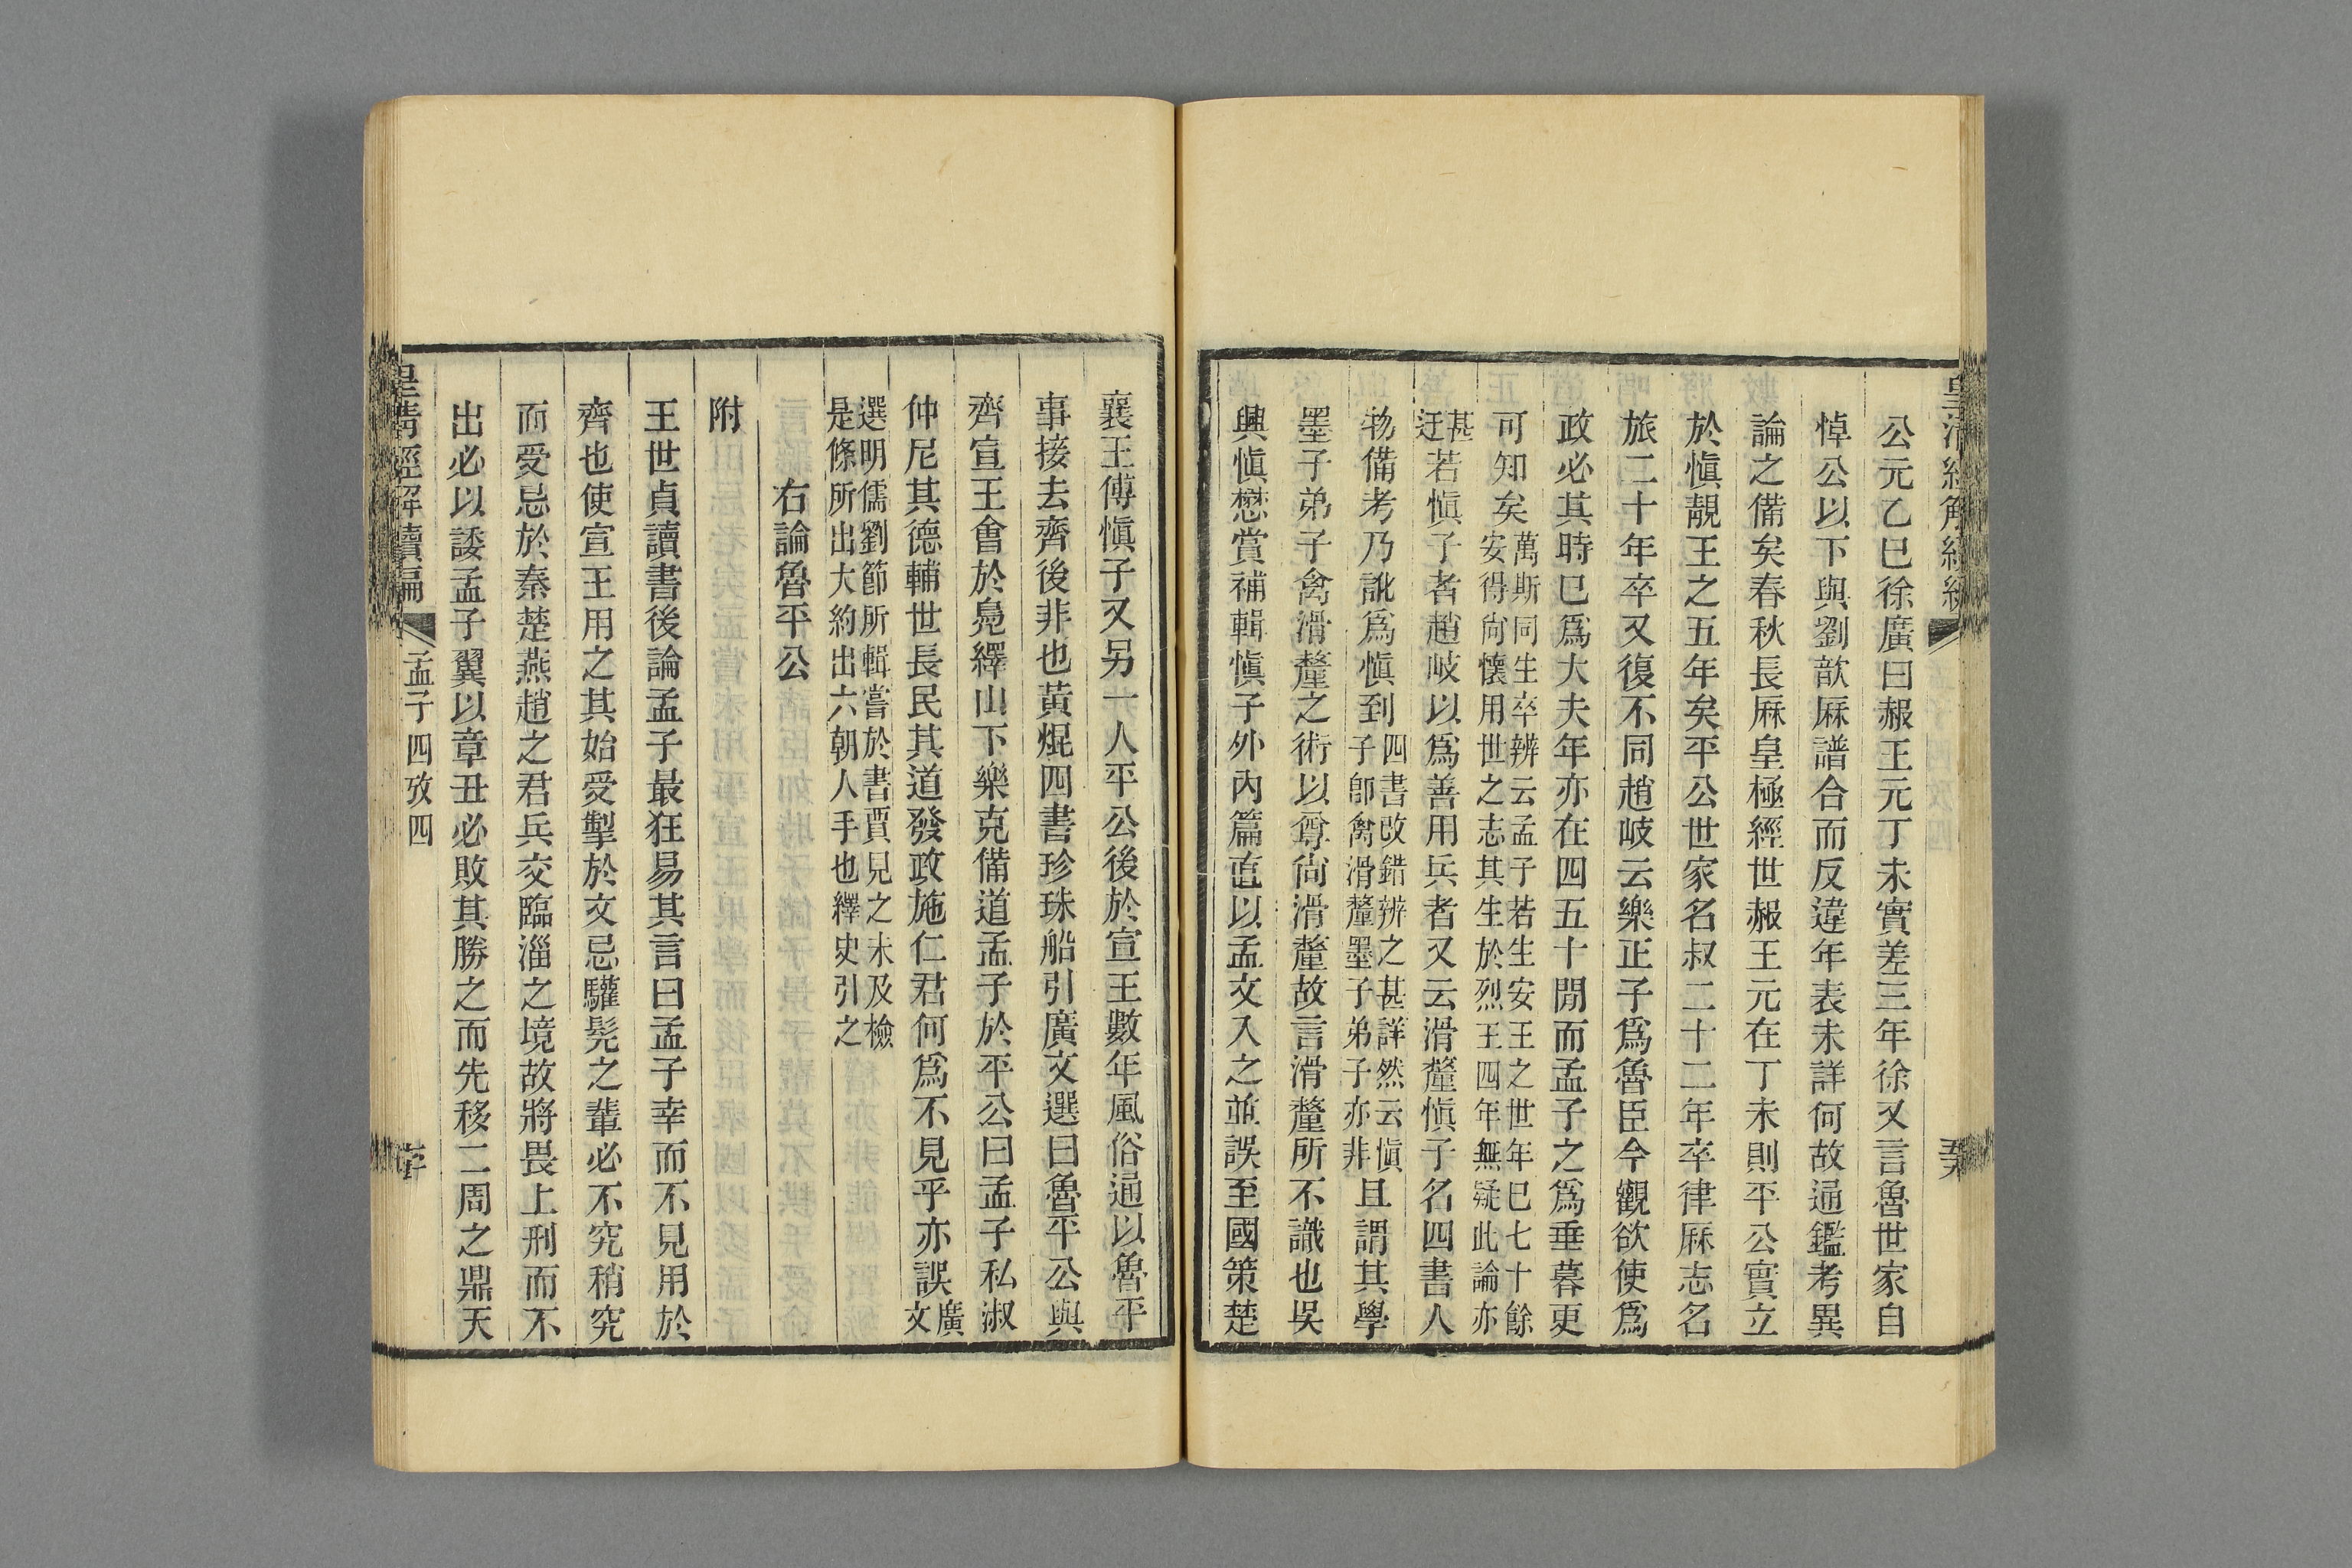 公元乙巳徐廣曰赧王元丁未實差三年徐又言魯世家自
悼公以下與劉歆厤譜合而反違年表未詳何故通鑑考異
論之備矣春秋長厤皇極經世赧王元在丁未則平公實立
於愼靚王之五年矣平公世家名叔二十二年卒律厤志名
旅二十年卒又復不同趙岐云樂正子爲魯臣今觀欲使爲
政必其時已爲大夫年亦在四五十閒而孟子之爲垂暮更
可知矣萬斯同生卒辨云孟子若生安王之世年已七十餘
安得尙懷用世之志其生於烈王四年無疑此論亦
甚
迂若愼子者趙岐以爲善用兵者又云滑釐愼子名四書人
物備考乃訛爲愼到四書改錯辨之甚詳然云愼
子師禽滑釐墨子弟子亦非且謂其學
墨子弟子禽滑釐之術以尊尙滑釐故言滑釐所不識也吳
興愼懋賞補輯愼子外內篇直以孟文入之並誤至國策楚
襄王傅愼子又另一人平公後於宣王數年風俗通以魯平
事接去齊後非也黃焜四書珍珠船引廣文選曰魯平公與
齊宣王會於鳧繹山下樂克備道孟子於平公曰孟子私淑
仲尼其德輔世長民其道發政施仁君何爲不見乎亦誤廣
文
選明儒劉節所輯嘗於書賈見之未及檢
是條所出大約出六朝人手也繹史引之
右論魯平公
附
王世貞讀書後論孟子最狂易其言曰孟子幸而不見用於
齊也使宣王用之其始受掣於文忌驩髡之輩必不究稍究
而受忌於秦楚燕趙之君兵交臨淄之境故將畏上刑而不
出必以諉孟子翼以章丑必敗其勝之而先移二周之鼎天
皇清經解續編
孟子四攷四